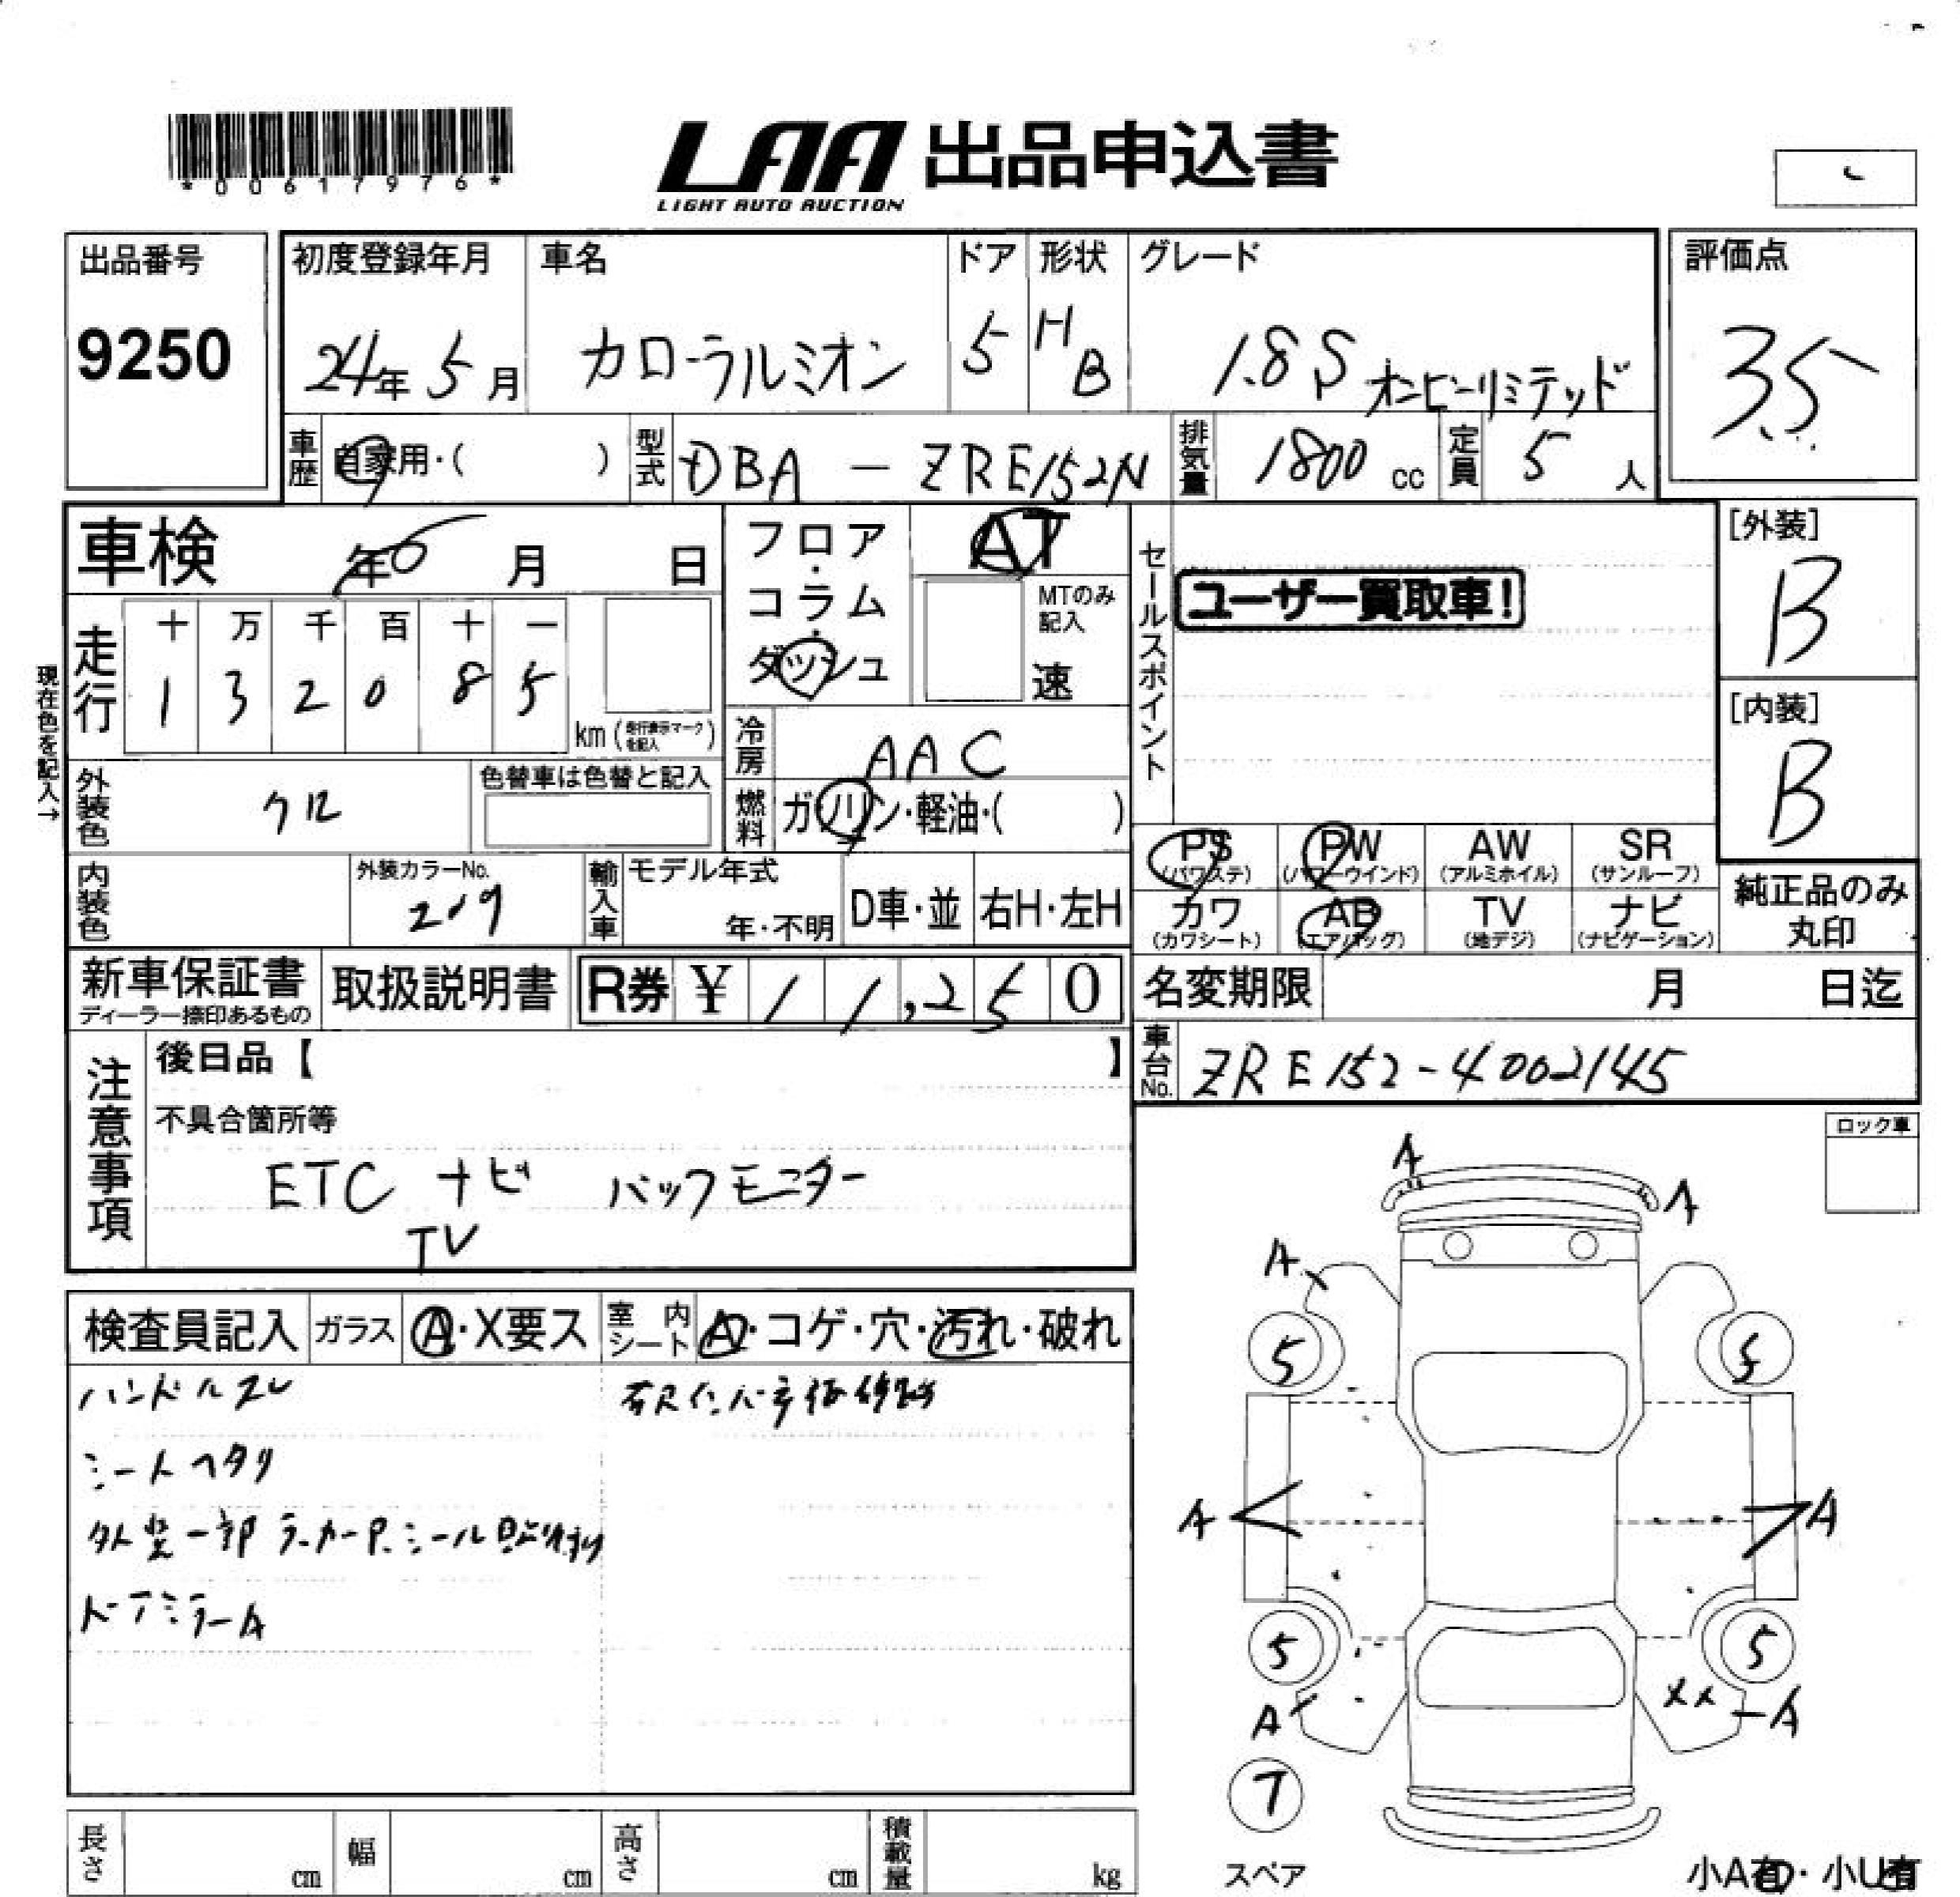 *00617976*
LAA 出品申込書
LIGHT AUTO AUCTION
出品番号
9250
初度登録年月
24年 5月
車名
カローラルミオン
ドア
5
形状
HB
グレード
1.8S オンビーリミテッド
評価点
3.5
車歴
自家用・( )
型式
DBA - ZRE152N
排気量
1800 cc
定員
5 人
車検 年 月 日
フロア・コラム・ダッシュ
AT
MTのみ記入
速
セールスポイント
ユーザー買取車!
[外装]
B
[内装]
B
現在色を記入→
走行
十 万 千 百 十 一
1 3 2 0 8 5
km (走行表示マークを記入)
冷房
AAC
燃料
ガソリン・軽油・( )
外装色
クロ
色替車は色替と記入
内装色
外装カラーNo.
209
輸入車
モデル年式
年・不明
D車・並
右H・左H
PS (パワステ)
PW (パワーウインド)
AW (アルミホイル)
SR (サンルーフ)
カワ (カワシート)
AB (エアバッグ)
TV (地デジ)
ナビ (ナビゲーション)
純正品のみ丸印
新車保証書
ディーラー捺印あるもの
取扱説明書
R券 ¥ 11,250
名変期限 月 日迄
車台No.
ZRE152-4002145
注意事項
後日品【 】
不具合箇所等
ETC ナビ バックモニター
TV
ロック車
検査員記入
ガラス
A・X要ス
室内シート
A・コゲ・穴・汚れ・破れ
ハンドルスレ
シートヘタリ
外装一部
ドアミラーA
A
A
A
5
5
A
A
5
5
A
XX
A
T
スペア
小A有・小U有
長さ cm
幅 cm
高さ cm
積載量 kg